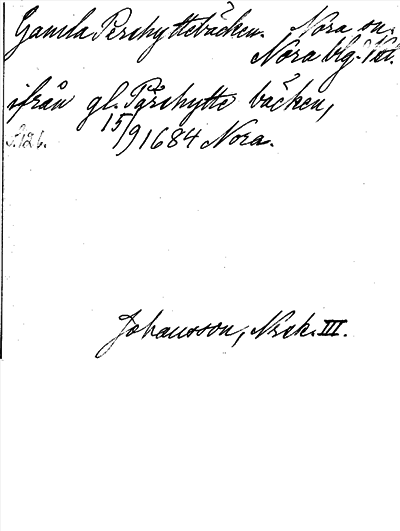 Gamla Pershyttebäcken. Nora sn.
Nora blg. Vtn.
ifrån gl. Pärshytte bäcken,
15/9 1684 Nora.
s. 126.
Johansson, Nbsk. III.